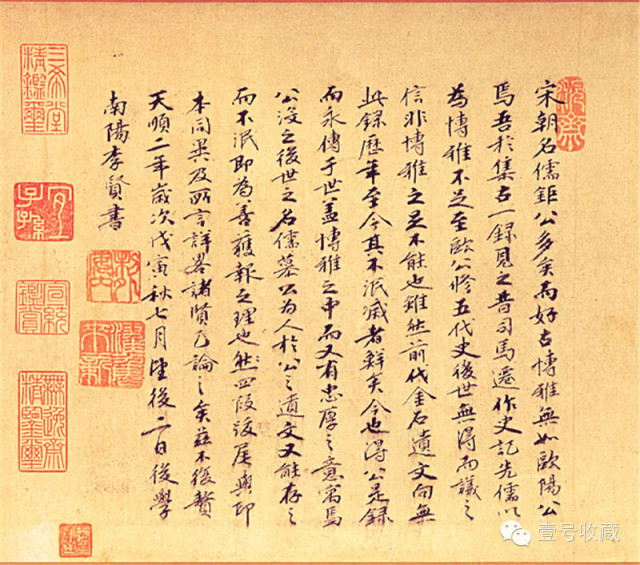 宋朝名儒鉅公多矣而好古博雅無如歐陽公
焉吾於集古一錄見之昔司馬遷作史記先儒以
為博雅不足至歐公修五代史後世無得而議之
信非博雅之足不能也雖然前代金石遺文向無
此錄歷年至今其不泯滅者鮮矣今也得公是錄
而永傳于世蓋博雅之中而又有忠厚之意寓焉
公沒之後世之名儒慕公為人於公之遺文又能存之
而不泯即為善獲報之理也然四段跋尾與印
本同異及所言詳畧諸賢已論之矣茲不復贅
天順二年歲次戊寅秋七月望後二日後學
南陽李賢書
三希堂精鑑璽
宜子孫
宣統鑑賞
無逸齋精鑑璽
壹号收藏